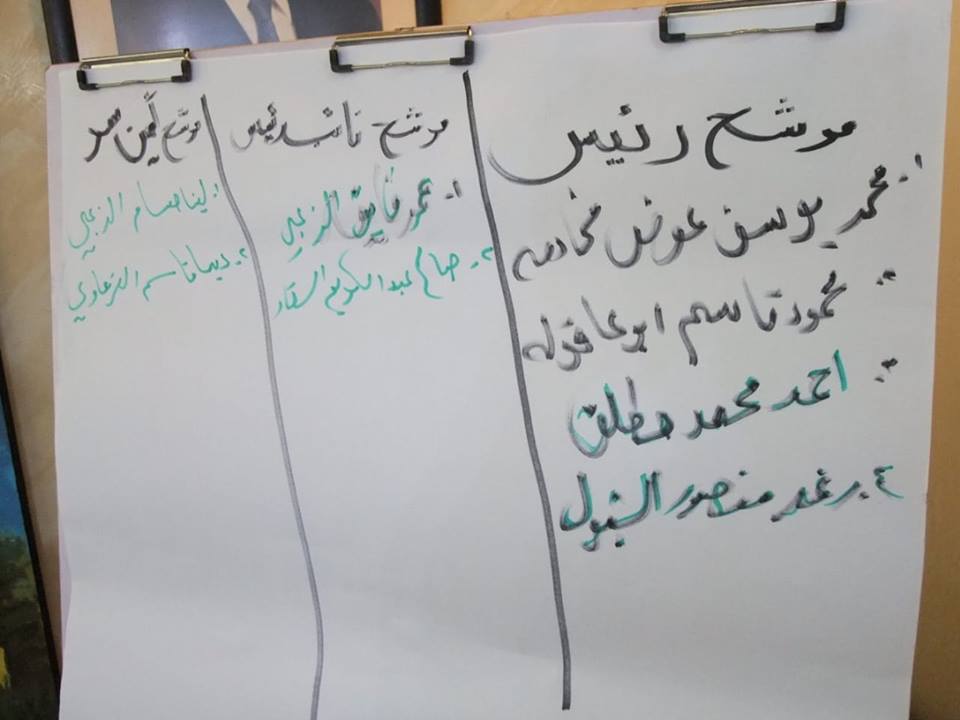 مرشح رئيس
١. محمد يوسف عوض مخادمه
٢. محمود قاسم ابو عاقوله
٣. احمد محمد مطلق
٤. رغد منصور الشبول
مرشح نائب رئيس
١. عمر فايق الزعبي
٢. صالح عبد الكريم السقار
مرشح أمين سر
١. لينا حسام الزعبي
٢. ديما قاسم